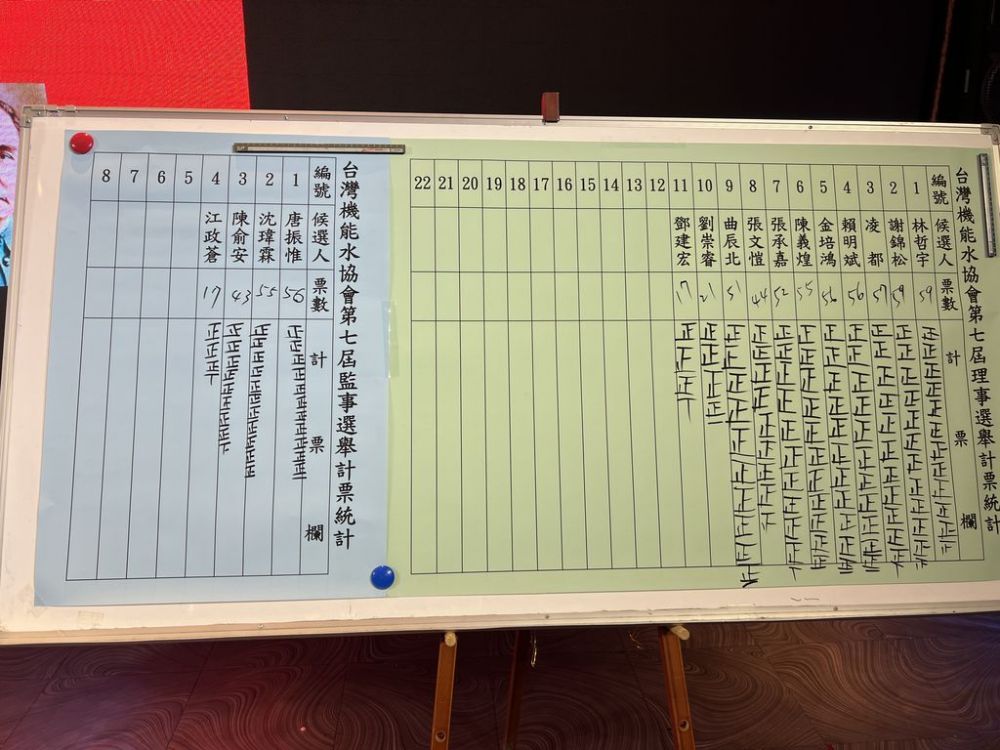 台灣機能水協會第七屆理事選舉計票統計
編號 候選人 票數 計票欄
1 林哲宇 59
2 謝錦松 59
3 凌都 57
4 賴明斌 56
5 金培鴻 56
6 陳義煌 55
7 張承嘉 52
8 張文愷 44
9 曲辰北 51
10 劉崇睿 21
11 鄧建宏 17
12
13
14
15
16
17
18
19
20
21
22
台灣機能水協會第七屆監事選舉計票統計
編號 候選人 票數 計票欄
1 唐振惟 56
2 沈瑋霖 55
3 陳俞安 43
4 江政蒼 17
5
6
7
8